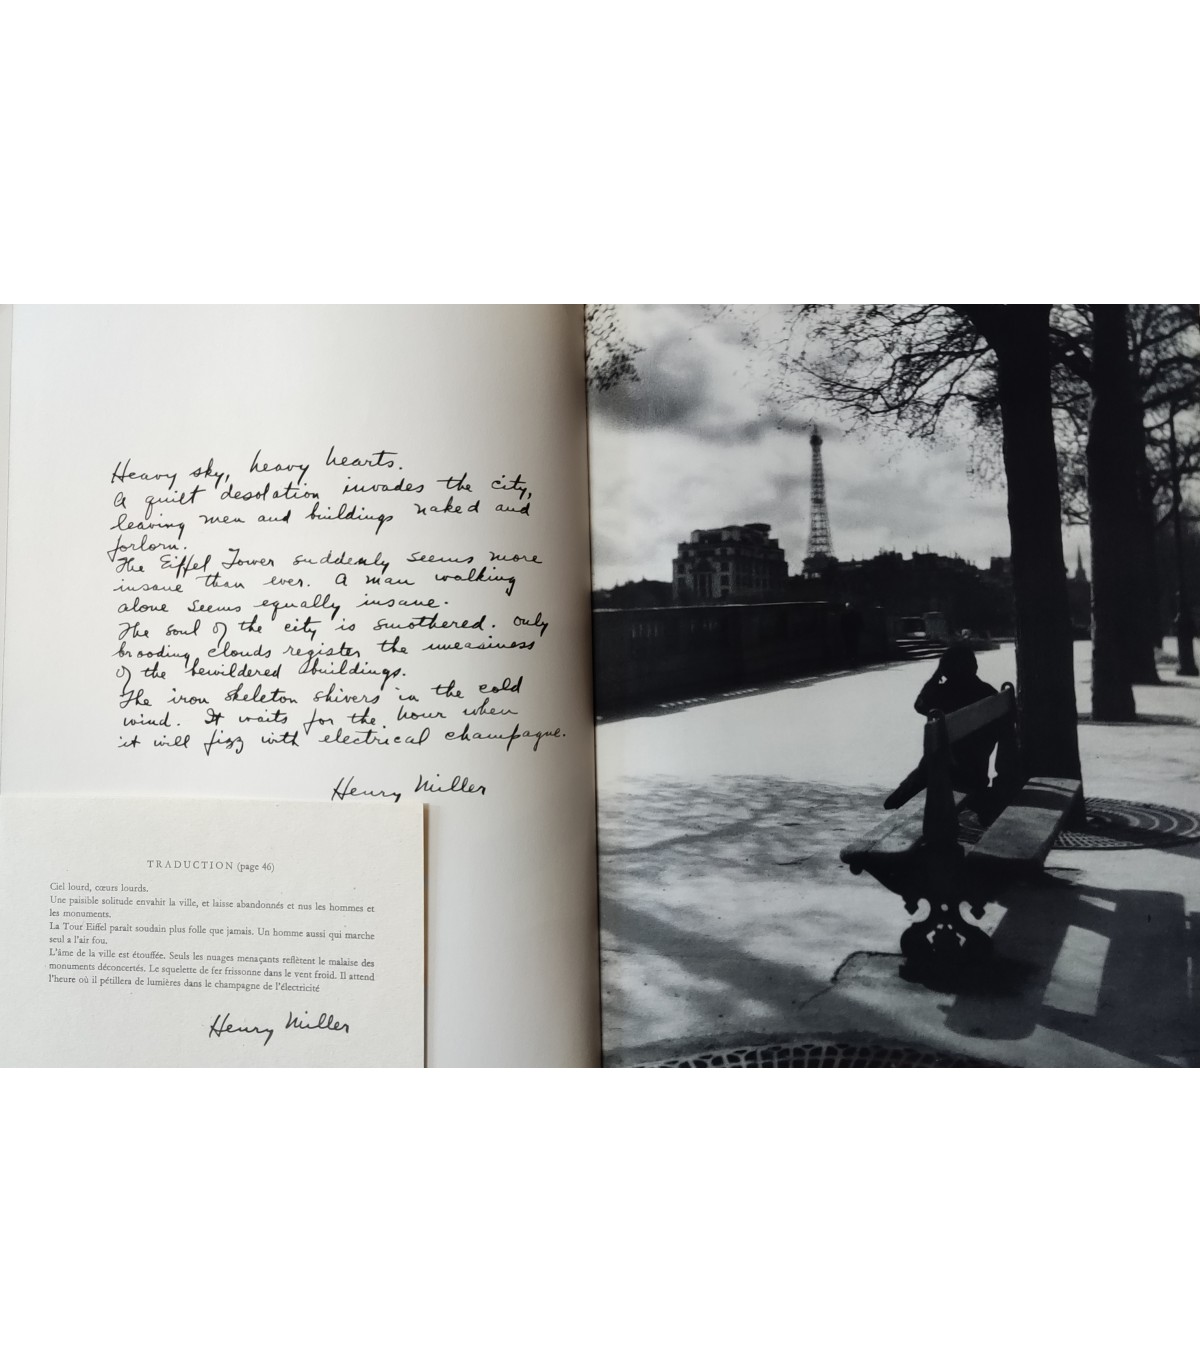 Heavy sky, heavy hearts.
A quiet desolation invades the city,
leaving men and buildings naked and
forlorn.
The Eiffel Tower suddenly seems more
insane than ever. A man walking
alone seems equally insane.
The soul of the city is smothered. Only
brooding clouds register the uneasiness
of the bewildered buildings.
The iron skeleton shivers in the cold
wind. It waits for the hour when
it will fizz with electrical champagne.
Henry Miller
TRADUCTION (page 46)
Ciel lourd, cœurs lourds.
Une paisible solitude envahit la ville, et laisse abandonnés et nus les hommes et
les monuments.
La Tour Eiffel paraît soudain plus folle que jamais. Un homme aussi qui marche
seul a l'air fou.
L'âme de la ville est étouffée. Seuls les nuages menaçants reflètent le malaise des
monuments déconcertés. Le squelette de fer frissonne dans le vent froid. Il attend
l'heure où il pétillera de lumières dans le champagne de l'électricité
Henry Miller